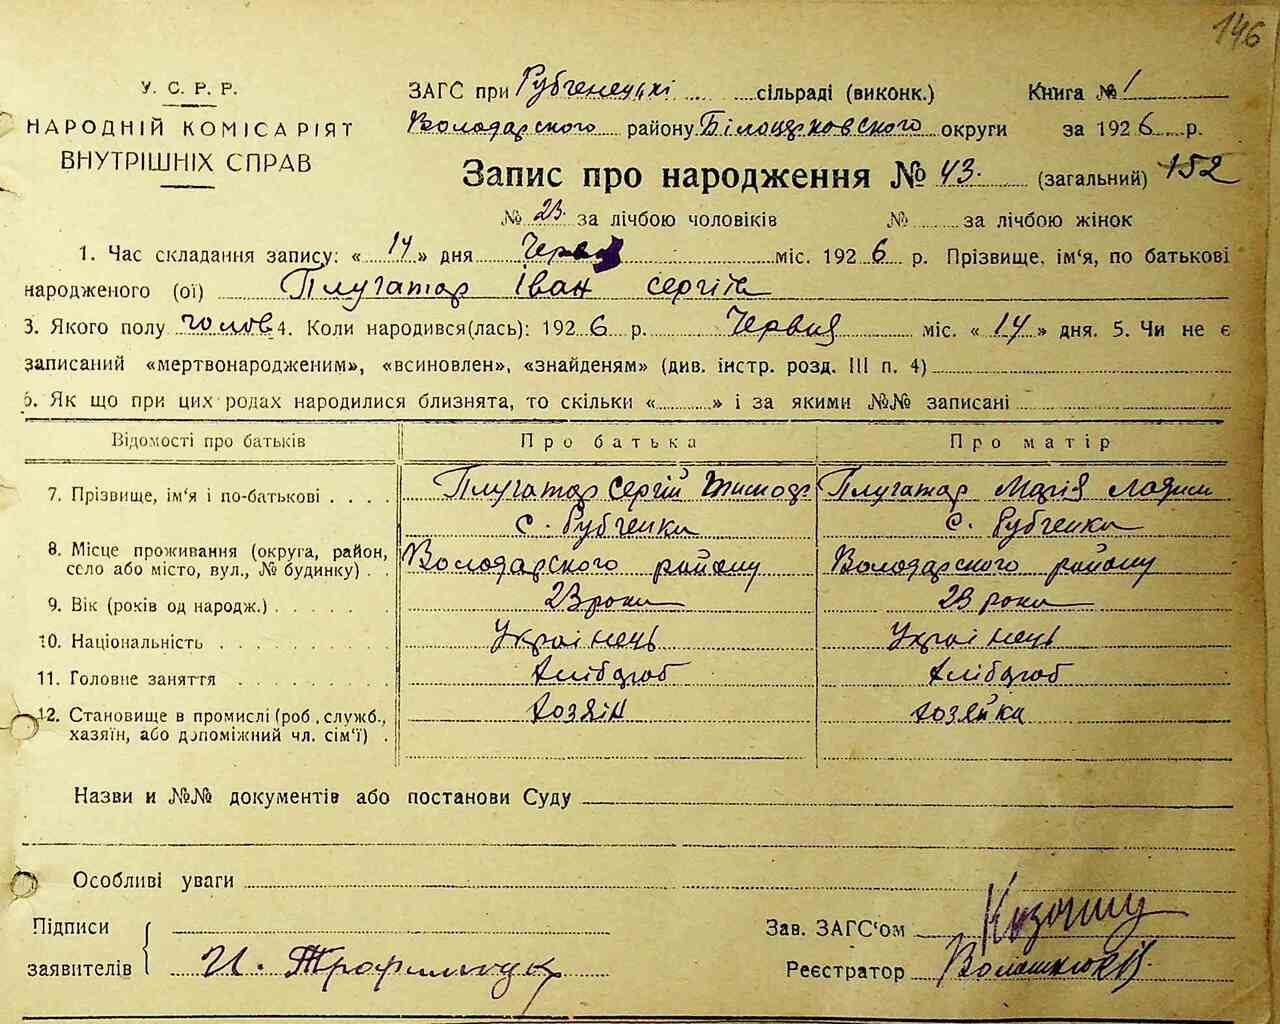 146
У. С. Р. Р.
НАРОДНІЙ КОМІСАРІЯТ
ВНУТРІШНІХ СПРАВ
ЗАГС при Рубченецькі сільраді (виконк.) Книга № 1
Володарского району Білоцерковского округи за 1926 р.
Запис про народження № 43. (загальний) 152
№ 23. за лічбою чоловіків № за лічбою жінок
1. Час складання запису: « 14 » дня Червня міс. 1926 р. Прізвище, ім'я, по батькові
народженого (ої) Плугатар Іван Сергіїв
3. Якого полу чолов 4. Коли народився(лась): 1926 р. Червня міс. « 14 » дня. 5. Чи не є
записаний «мертвонародженим», «всиновлен», «знайденям» (див. інстр. розд. III п. 4)
6. Як що при цих родах народилися близнята, то скільки « » і за якими №№ записані
Відомості про батьків Про батька Про матір
7. Прізвище, ім'я і по-батькові Плугатар Сергій Тимоф Плугатар Марія
с. Рубченки с. Рубченки
8. Місце проживання (округа, район, село або місто, вул., № будинку) Володарского району Володарского району
9. Вік (років од народж.) 23 роки 23 роки
10. Національність Украінець Украінець
11. Головне заняття хлібороб хлібороб
12. Становище в промислі (роб., служб., хазяїн, або допоміжний чл. сім'ї) хозяін хозяйка
Назви и №№ документів або постанови Суду
Особливі уваги
Підписи
заявителів И. Трофимчук
Зав. ЗАГС'ом
Реєстратор